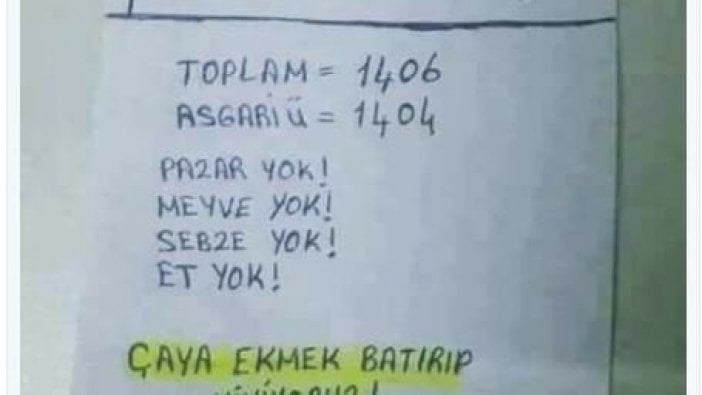 TOPLAM = 1406
ASGARİ Ü = 1404
PAZAR YOK!
MEYVE YOK!
SEBZE YOK!
ET YOK!
ÇAYA EKMEK BATIRIP